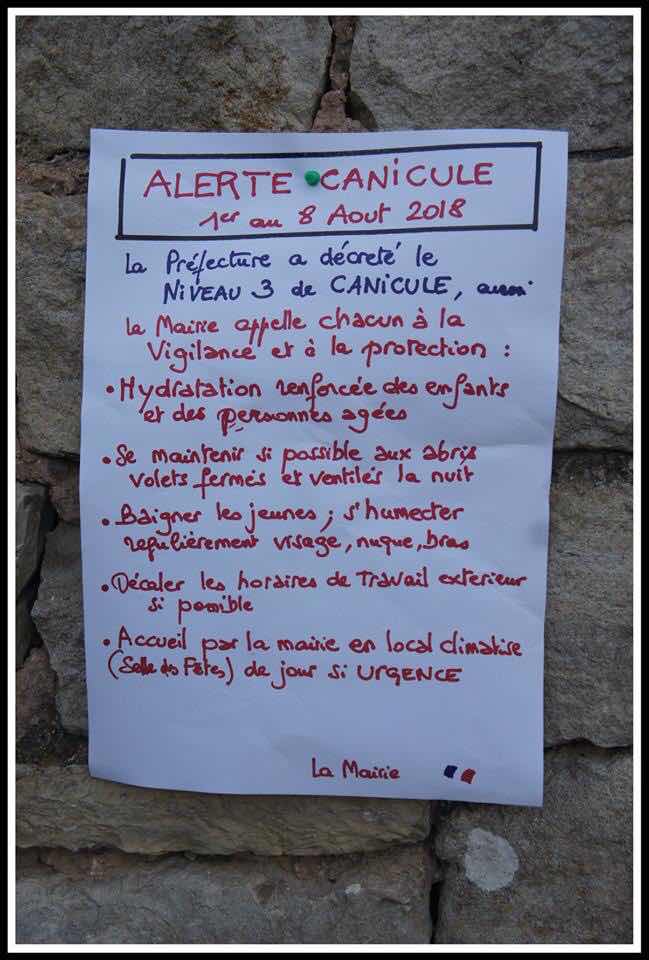 ALERTE CANICULE
1er au 8 Aout 2018
La Préfecture a décreté le
NIVEAU 3 de CANICULE, aussi
la Mairie appelle chacun à la
Vigilance et à la protection :
• Hydratation renforcée des enfants
et des personnes agées
• Se maintenir si possible aux abris
volets fermés et ventilés la nuit
• Baigner les jeunes ; s'humecter
regulièrement visage, nuque, bras
• Décaler les horaires de travail exterieur
si possible
• Accueil par la mairie en local climatisé
(Salle des Fêtes) de jour si URGENCE
La Mairie